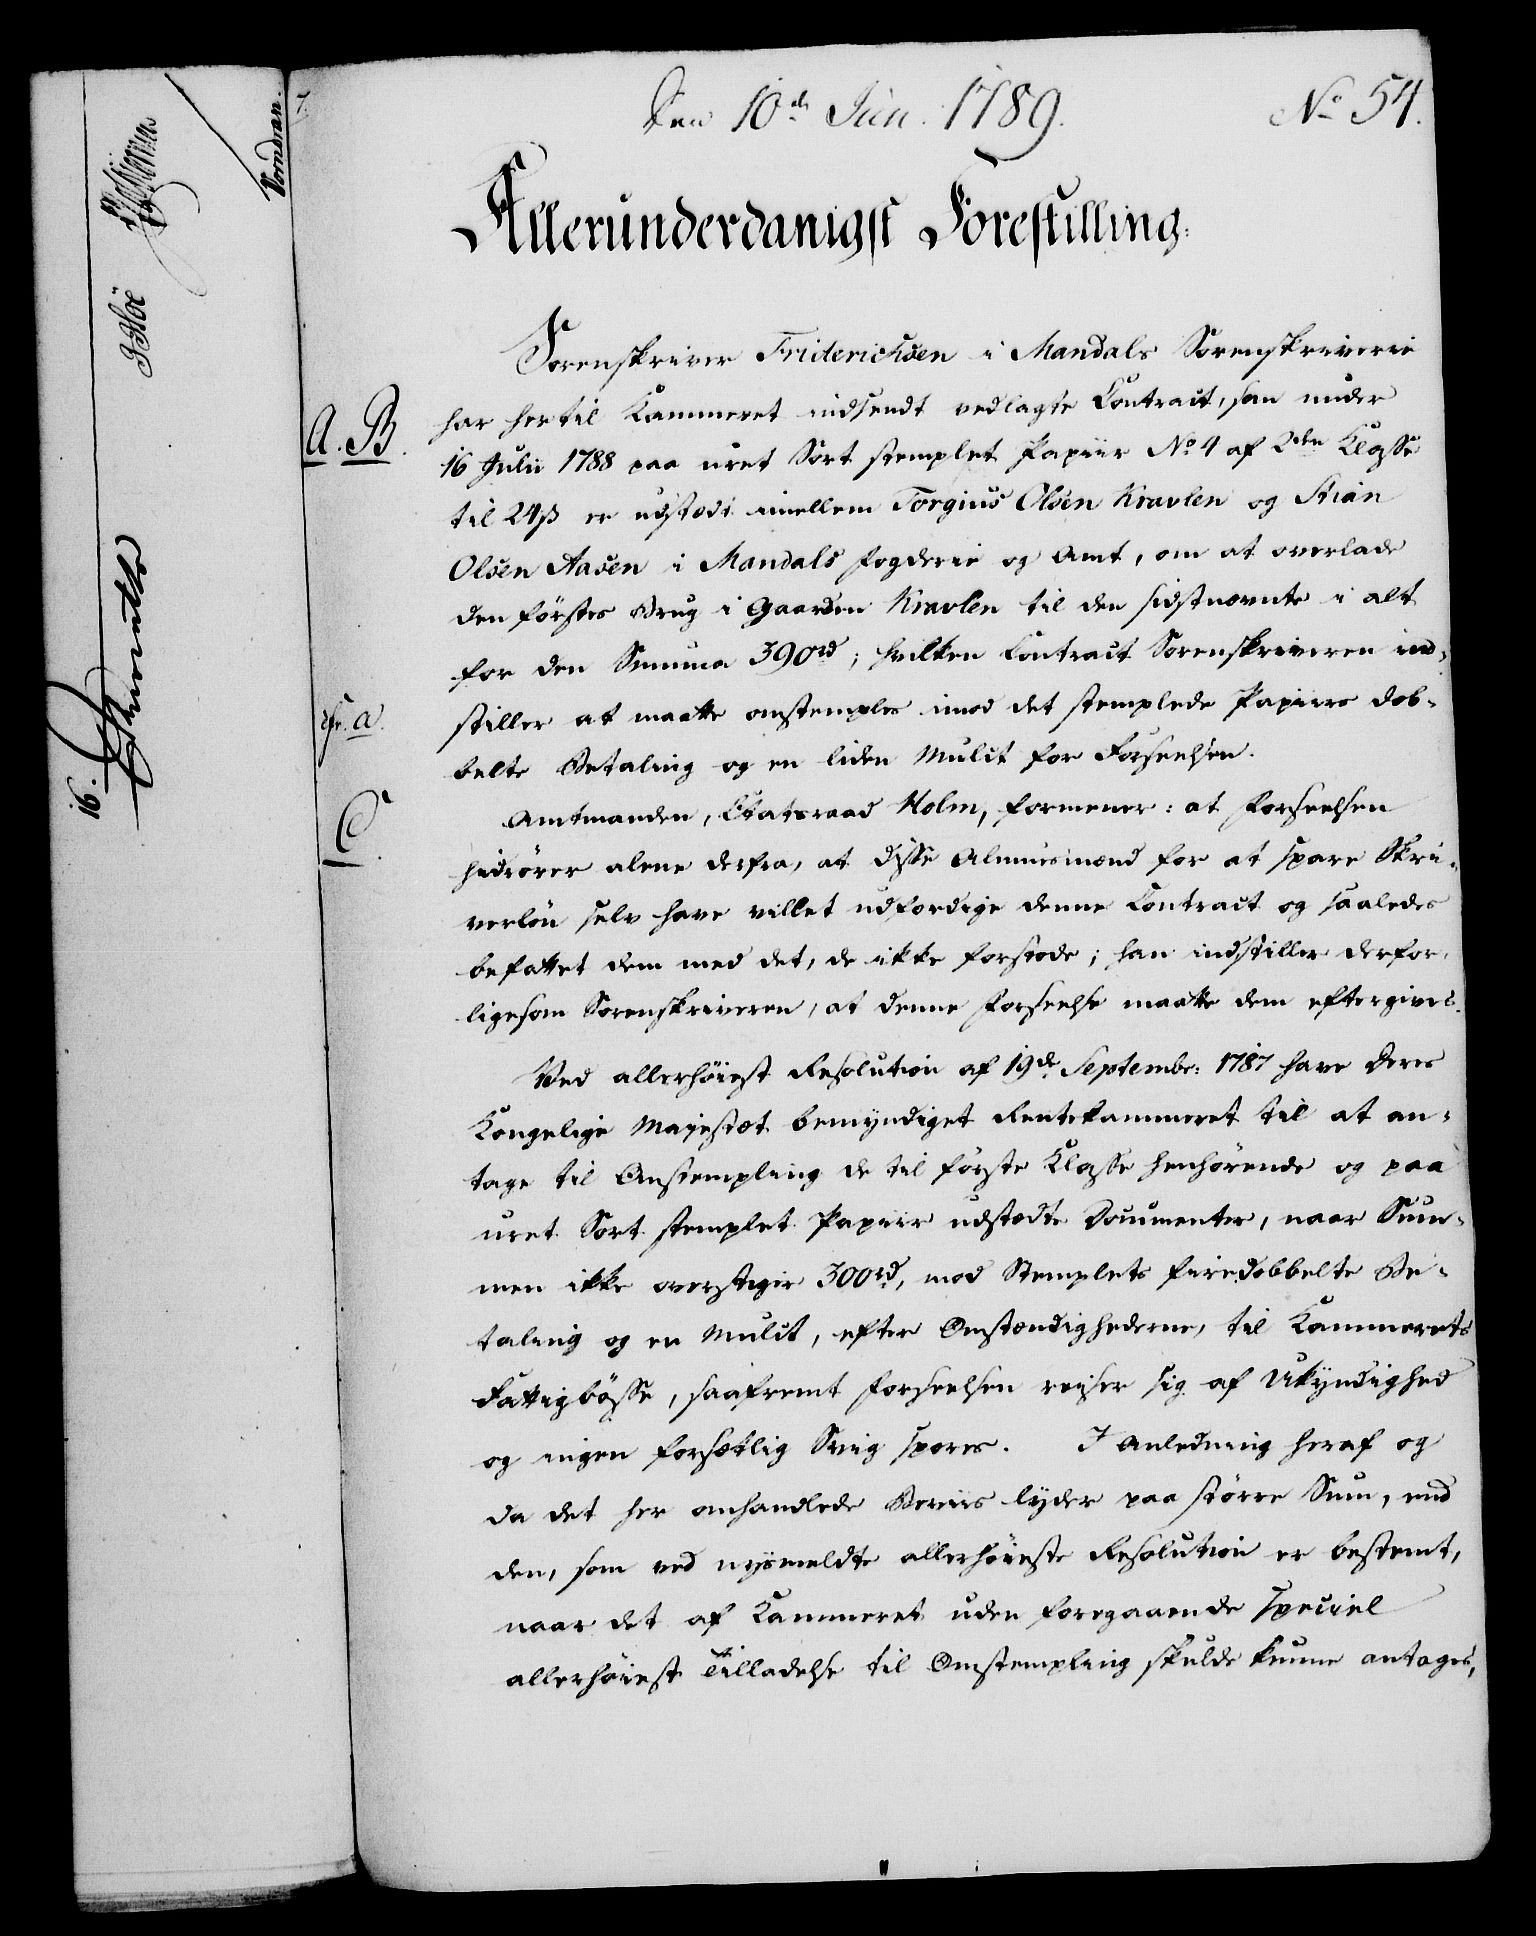 Den 10de Jun. 1789.
No 54.
Allerunderdanigst Forestilling.
Sorenskriver Friderichsen i Mandals Sorenskriverie
A. B.
har hertil Kammeret indsendt vedlagte Contract, som under
16 Julii 1788 paa uret Sort stemplet Papiir No 4 af 2den Klasse
til 24 ß er udstædt imellem Torgius Olsen Kravlen og Stian
Olsen Aasen i Mandals Fogderie og Amt, om at overlade
den førstes Brug i Gaarden Kravlen til den sidstnævnte i alt
for den Summa 390 rd; hvilken Contract Sorenskriveren ind-
cfr. a.
stiller at maatte omstemples imod det stemplede Papiirs dob-
belte Betaling og en liden Mulct for Forseelsen.
C.
Amtmanden, Etatsraad Holm, formener: at Forseelsen
hidrører alene derfra, at disse Almuesmænd for at spare Skri-
verløn selv have villet udfærdige denne Contract og saaledes
befattet dem med det, de ikke forstode; han indstiller derfor,
ligesom Sorenskriveren, at denne Forseelse maatte dem eftergives.
Ved allerhöiest Resolution af 19de Septembr: 1787 have Deres
Kongelige Majestæt bemyndiget Rentekammeret til at an-
tage til Omstempling de til første Klasse henhørende og paa
uret Sort stemplet Papiir udstædte Documenter, naar Sum-
men ikke overstiger 300 rd, mod Stemplets firedobbelte Be-
taling og en Mulct, efter Omstændighederne, til Kammerets
Fattigbøsse, saafremt Forseelsen reiser sig af Ukyndighed
og ingen forsætlig Svig spores. I Anledning heraf og
da det her omhandlede Beviis lyder paa større Sum, end
den, som ved nysmeldte allerhöieste Resolution er bestemt,
naar det af Kammeret uden foregaaende speciel
allerhöiest Tilladelse til Omstempling skulde kunne antages,
16.
Vorndran.